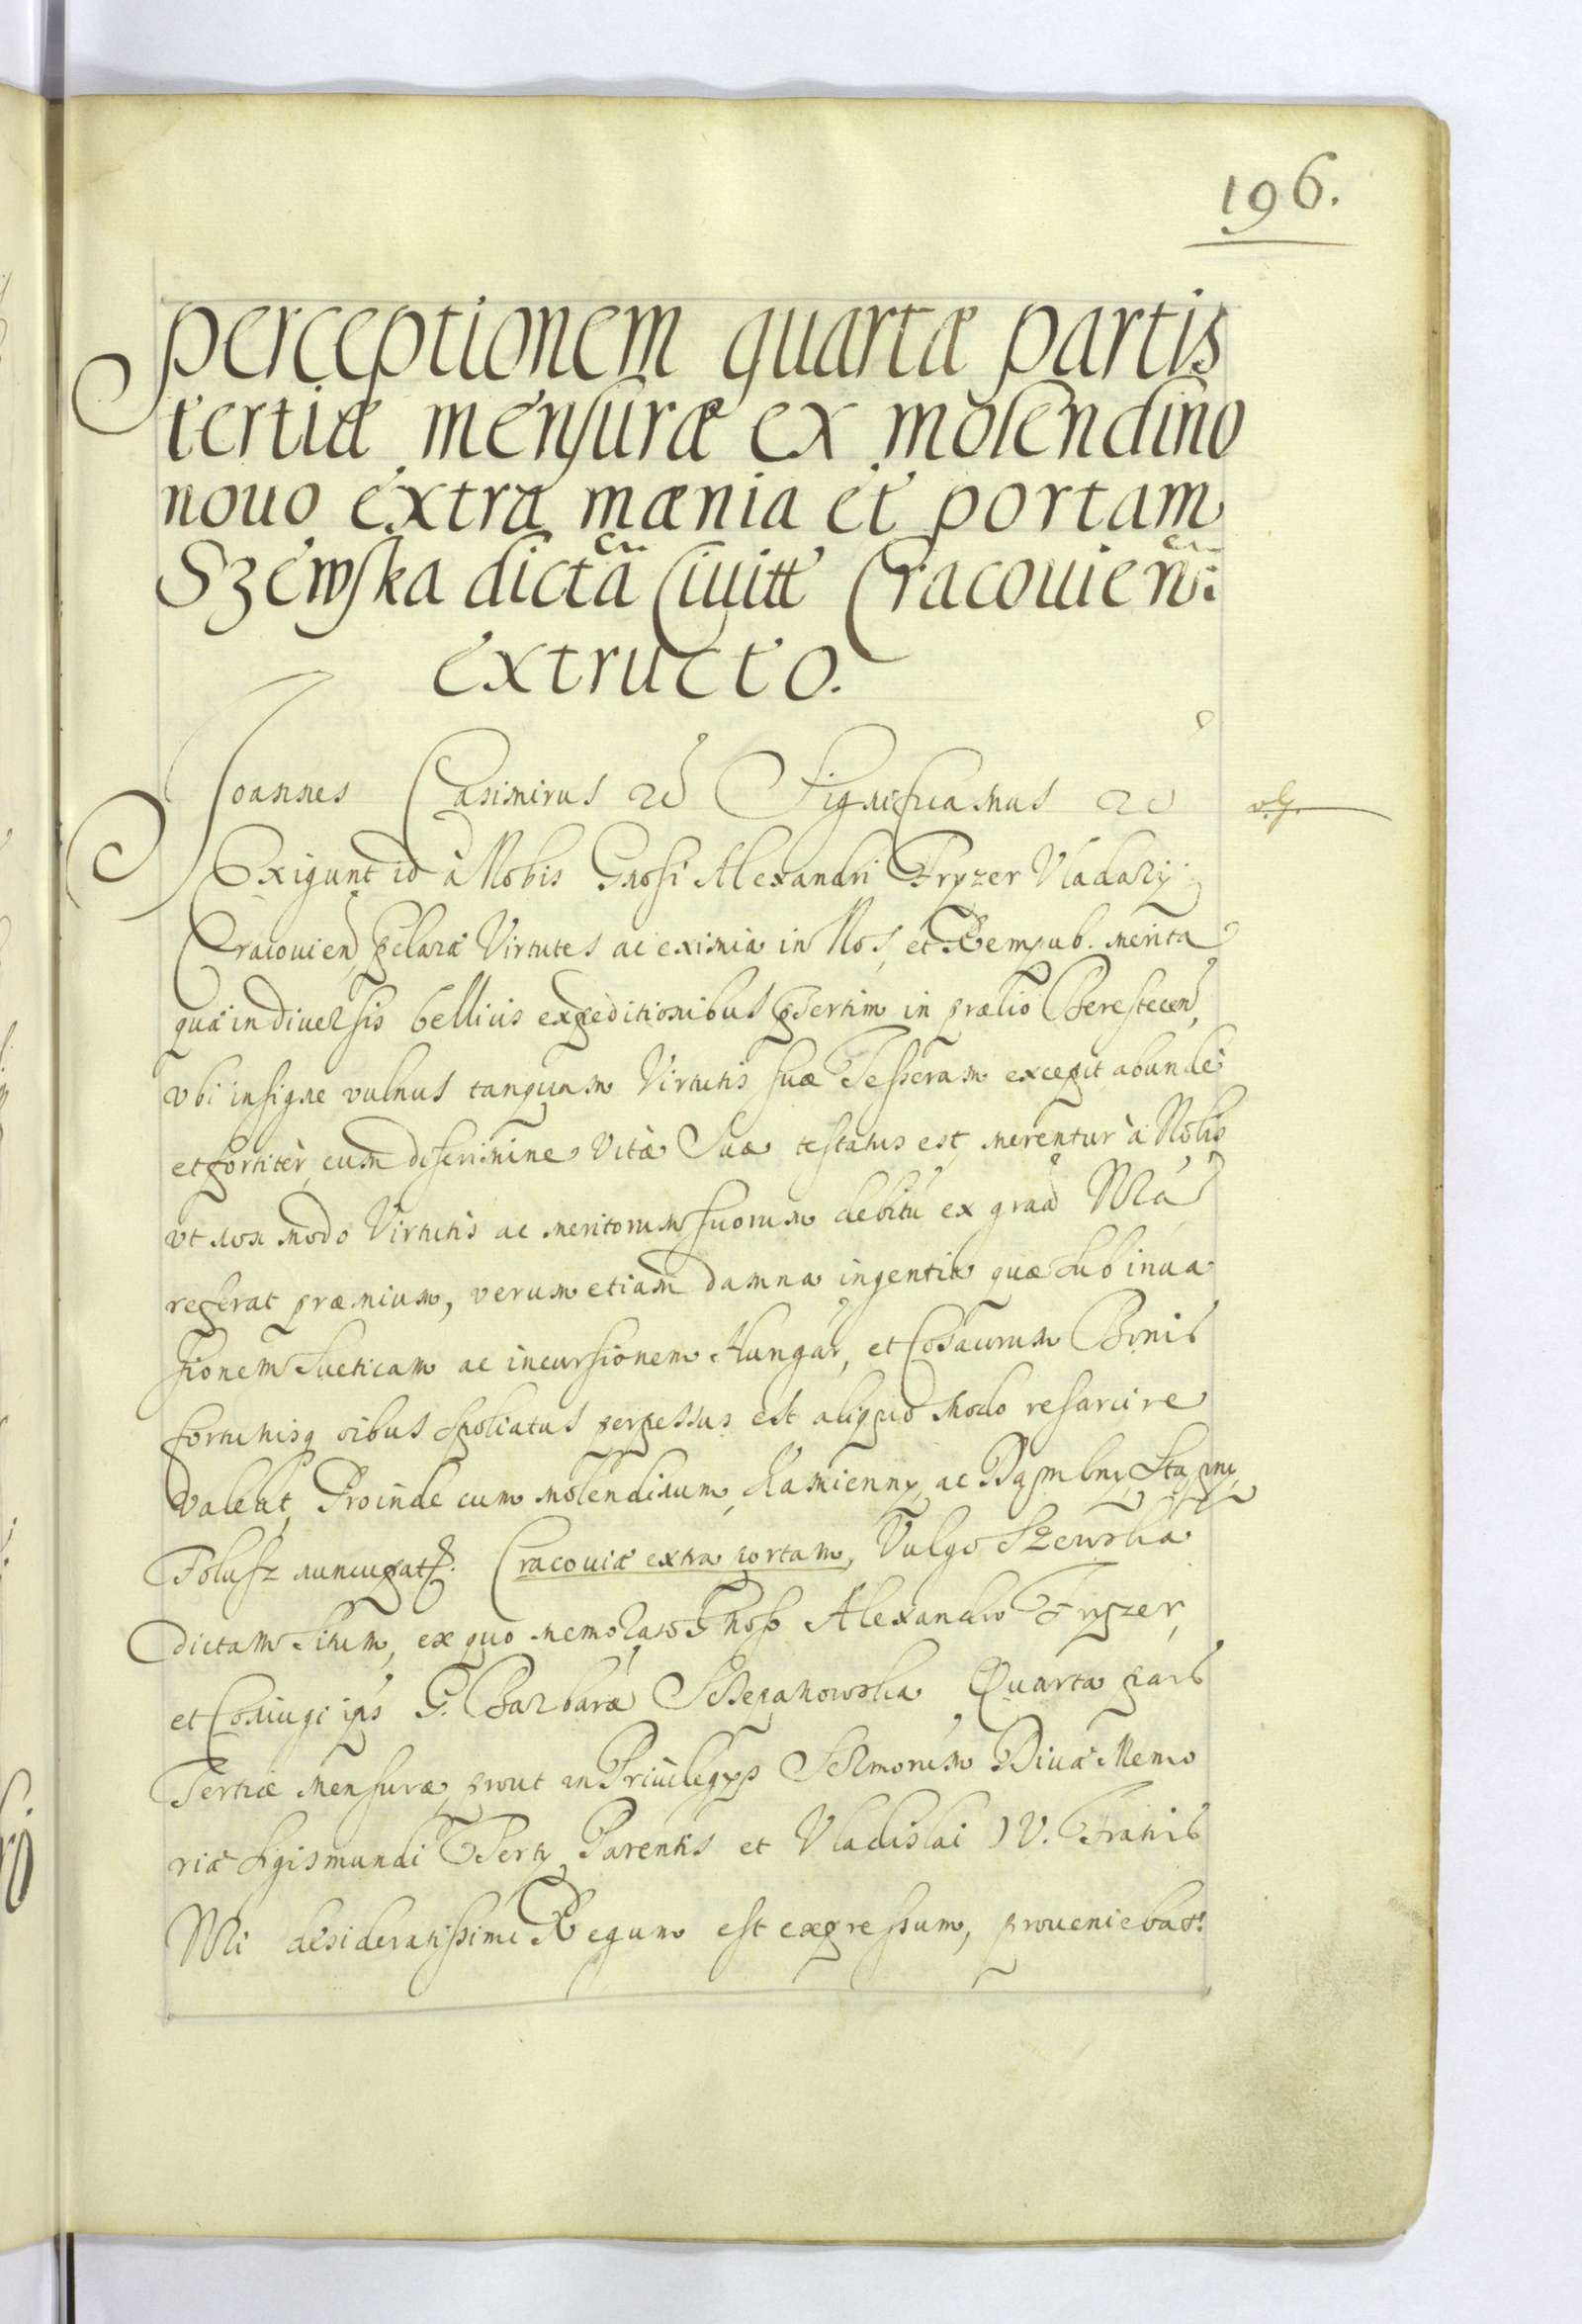 196.
perceptionem quartæ partis
tertiæ mensuræ ex molendino
nouo extra mænia et portam
Szewska dictã Ciuitt Cracouien:
extructo.
Joannes Casimirus &c Significamus &c
Exigunt id à Nobis Gnosi Alexandri Fryzer Vladarij
Cracouien, pclara Virtutes ac eximia in Nos, et Rempub. merita
quæ in diuersis bellicis expeditionibus psertim in prælio Berestecen,
vbi insigne vulnus tanquam Virtutis suæ Tesseram excepit abunde
et fortiter, cum discrimine Vitæ Suæ testatus est merentur à Nobis
vt non modo Virtutis ac meritorum suorum debitũ ex graã Mã
referat præmium, verum etiam damna ingentia quæ sub inua
sionem Sueticam ac incursionem Hungar, et Cosacorum Bonis
fortunisq oibus spoliatus perpessus est aliquo modo resarcire
valeat, Proinde cum molendinum, Kamienny, ac Dąmbny, Stąpny,
Folusz nuncupat. Cracouiæ extra portam, Vulgo Szewska
dictam situm, ex quo memorato Gnoso Alexandro Fryzer,
et Coniugi ips G. Barbaræ Sczepanowska Quarta pars
Tertiæ Mensuræ, prout in Priuilegijs Sermorum Diuæ Memo
riæ Sigismundi Tertij Parentis et Vladislai IV. Fratris
Nri desideratissimi Regum est expressum, proueniebat.